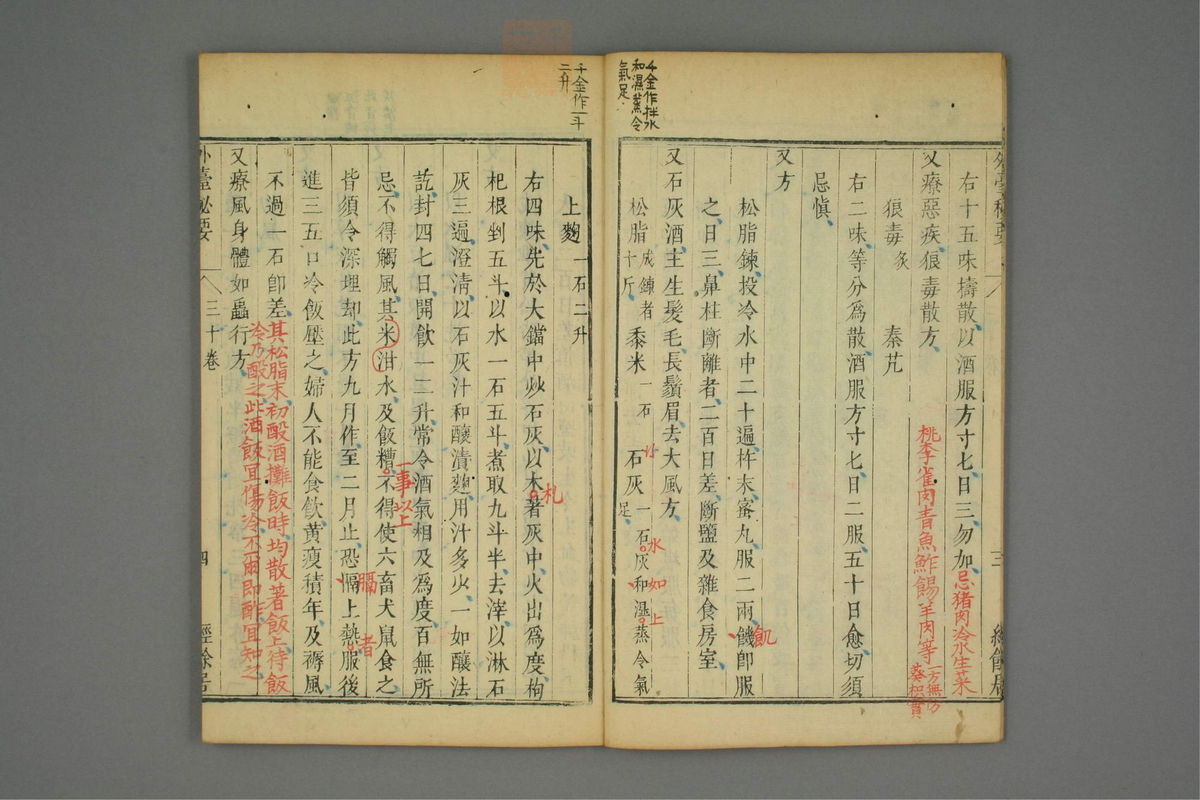 千金作拌水
和濕蒸令
氣足
右十五味擣散以酒服方寸匕日三勿加忌猪肉冷水生菜
桃李雀肉青魚鮓餳羊肉等一方無
又療惡疾狼毒散方
狼毒炙 秦艽
右二味等分爲散酒服方寸匕日二服五十日愈切須
忌愼
又方
松脂鍊投冷水中二十遍杵末蜜丸服二兩饑卽服
飢
之日三鼻柱斷離者二百日差斷鹽及雜食房室
又石灰酒主生髮毛長鬚眉去大風方
松脂十斤成鍊者 黍米一石 石灰一石灰和濕蒸令氣足
水如上
千金作一斗
二升
上麴一石二升
右四味先於大鐺中炒石灰以木著灰中火出爲度枸
札
杞根剉五斗以水一石五斗煮取九斗半去滓以淋石
灰三遍澄淸以石灰汁和釀漬麴用汁多少一如釀法
訖封四七日開飮一二升常令酒氣相及爲度百無所
忌不得觸風其米泔水及飯糟不得使六畜犬鼠食之
一事以上
皆須令深埋却此方九月作至二月止恐𦞦上熱服後
膈
者
進三五口冷飯壓之婦人不能食飮黄瘦積年及褥風
不過一石卽差其松脂末初酘酒攤飯時均散著飯上待飯
冷乃酘之此酒飯宜傷冷不爾即酢宜知之
又療風身體如蟲行方
外臺秘要 三十卷 四 經餘居